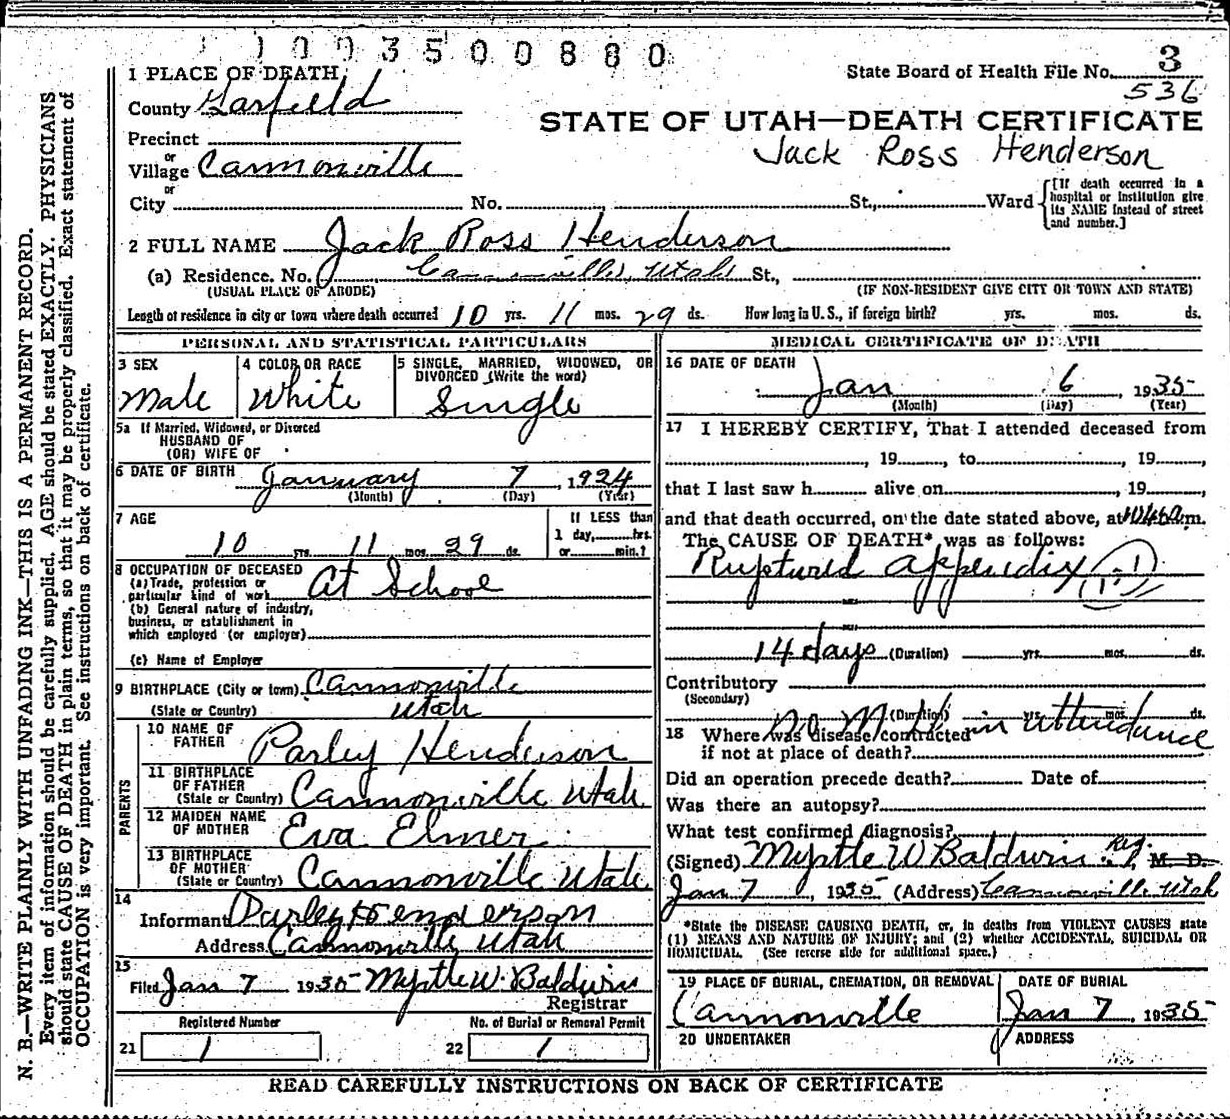 1 0 0 3 5 0 0 8 8 0
State Board of Health File No. 3
536
STATE OF UTAH—DEATH CERTIFICATE
Jack Ross Henderson
1 PLACE OF DEATH
County Garfield
Precinct
or
Village Cannonville
or
City No. St., Ward
[If death occurred in a
hospital or institution give
its NAME instead of street
and number.]
2 FULL NAME Jack Ross Henderson
(a) Residence. No. Cannonville, Utah St.,
(USUAL PLACE OF ABODE) (IF NON-RESIDENT GIVE CITY OR TOWN AND STATE)
Length of residence in city or town where death occurred 10 yrs. 11 mos. 29 ds. How long in U. S., if foreign birth? yrs. mos. ds.
PERSONAL AND STATISTICAL PARTICULARS
3 SEX
Male
4 COLOR OR RACE
White
5 SINGLE, MARRIED, WIDOWED, OR
DIVORCED (Write the word)
Single
5a If Married, Widowed, or Divorced
HUSBAND OF
(OR) WIFE OF
6 DATE OF BIRTH January 7, 1924
(Month) (Day) (Year)
7 AGE
10 yrs. 11 mos. 29 ds.
If LESS than
1 day, hrs.
or min.?
8 OCCUPATION OF DECEASED
(a) Trade, profession or
particular kind of work At School
(b) General nature of industry,
business, or establishment in
which employed (or employer)
(c) Name of Employer
9 BIRTHPLACE (City or town) Cannonville
(State or Country) Utah
PARENTS
10 NAME OF
FATHER Parley Henderson
11 BIRTHPLACE
OF FATHER
(State or Country) Cannonville Utah
12 MAIDEN NAME
OF MOTHER Eva Elmer
13 BIRTHPLACE
OF MOTHER
(State or Country) Cannonville Utah
14
Informant Parley Henderson
Address Cannonville Utah
15
Filed Jan 7 1935 Myrtle W. Baldwin
Registrar
Registered Number No. of Burial or Removal Permit
21 1 22 1
MEDICAL CERTIFICATE OF DEATH
16 DATE OF DEATH
Jan 6 1935
(Month) (Day) (Year)
17 I HEREBY CERTIFY, That I attended deceased from
, 19 , to , 19 ,
that I last saw h alive on , 19 ,
and that death occurred, on the date stated above, at m.
The CAUSE OF DEATH* was as follows:
Ruptured appendix
14 days (Duration) yrs. mos. ds.
Contributory
(Secondary)
(Duration) yrs. mos. ds.
No M.D. in attendance
18 Where was disease contracted
if not at place of death?
Did an operation precede death? Date of
Was there an autopsy?
What test confirmed diagnosis?
(Signed) Myrtle W Baldwin Reg. M. D.
Jan 7, 1935 (Address) Cannonville Utah
*State the DISEASE CAUSING DEATH, or, in deaths from VIOLENT CAUSES state
(1) MEANS AND NATURE OF INJURY; and (2) whether ACCIDENTAL, SUICIDAL OR
HOMICIDAL. (See reverse side for additional space.)
19 PLACE OF BURIAL, CREMATION, OR REMOVAL
Cannonville
DATE OF BURIAL
Jan 7, 1935
20 UNDERTAKER
ADDRESS
READ CAREFULLY INSTRUCTIONS ON BACK OF CERTIFICATE
N. B.—WRITE PLAINLY WITH UNFADING INK—THIS IS A PERMANENT RECORD.
Every item of information should be carefully supplied. AGE should be stated EXACTLY. PHYSICIANS
should state CAUSE OF DEATH in plain terms, so that it may be properly classified. Exact statement of
OCCUPATION is very important. See instructions on back of certificate.